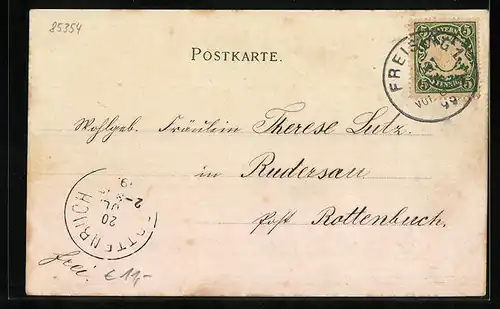 85354
POSTKARTE.
BAYERN
5 5
PFENNIG
5 5
FREISING
99
Wohlgeb. Fräulein Therese Lutz.
in Rudersau
Post Rottenbuch.
ROTTENBUCH
20
JUL
2-3
frei.
€ 11,-